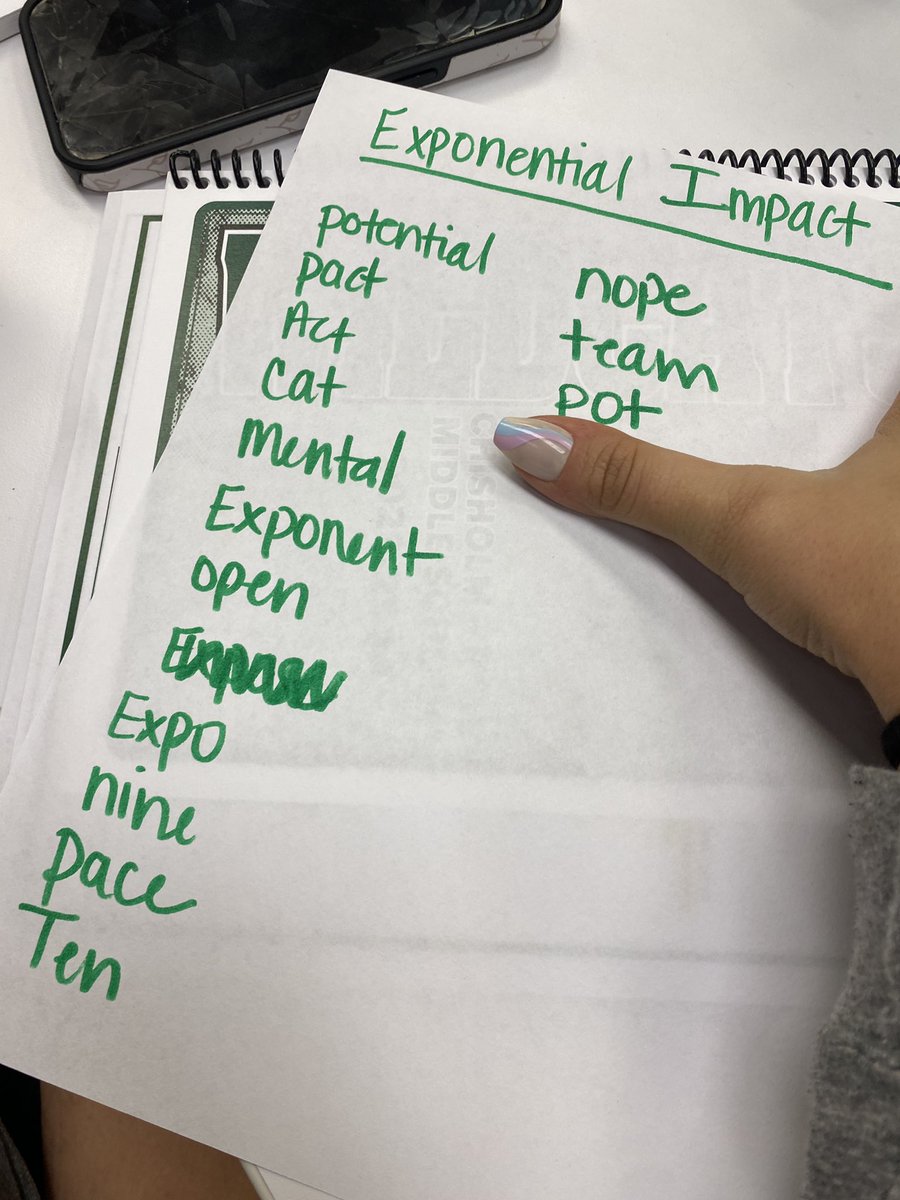 Exponential Impact
potential
pact
Act
Cat
mental
Exponent
open
Expo
nine
pace
Ten
nope
team
pot